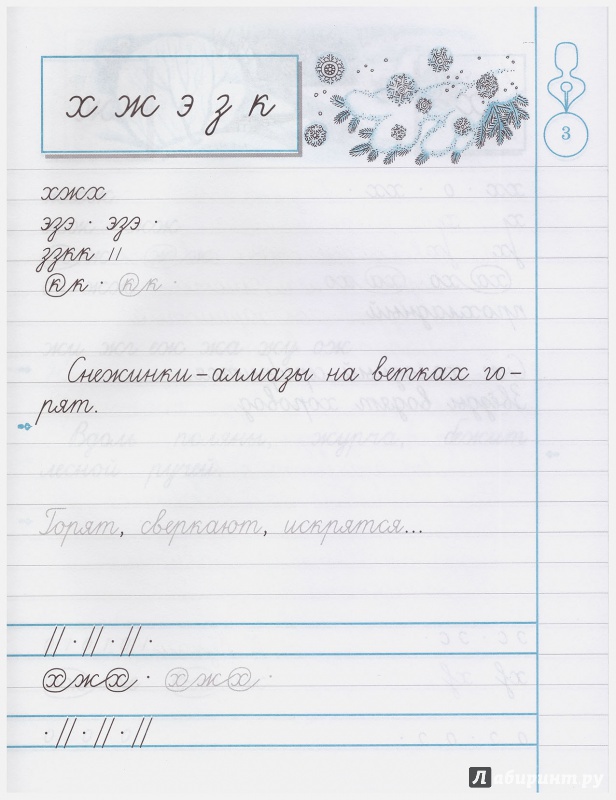 х ж э з к
3
хжх
эзэ · эзэ ·
ззкк //
кк · кк ·
Снежинки–алмазы на ветках го–
рят.
Горят, сверкают, искрятся...
// · // · // ·
хжх · хжх ·
· // · // · //
Лабиринт.ру